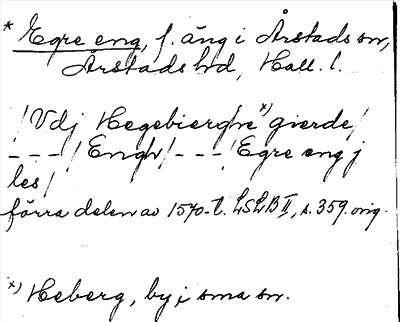 * Egre eng, f. äng i Årstads sn,
Årstads hd, Hall. l.
/Vdj Hegebierghe x) gierde/
- - - / Engh / - - - / Egre eng j
les/
förra delen av 1570-t. LSLB II, s. 359. orig.
x) Heberg, by i sma sn.